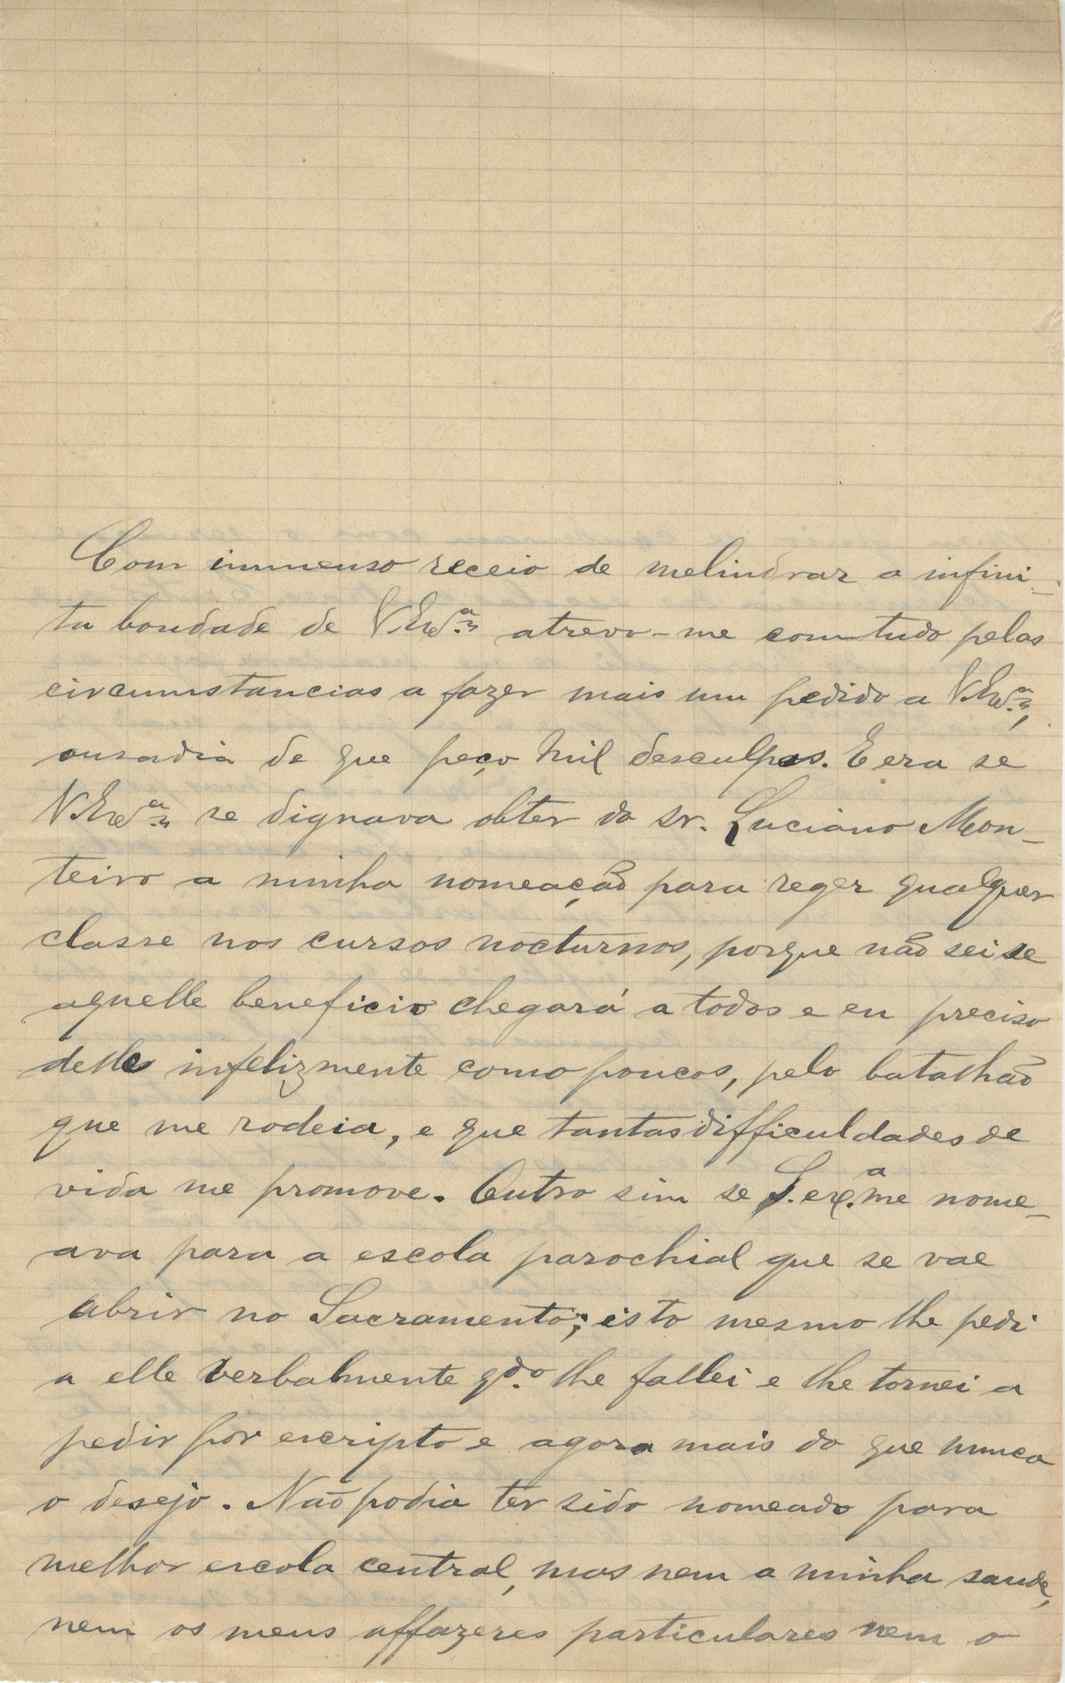 Com immenso receio de melindrar a infini-
ta bondade de V. Exª atrevo-me comtudo pelas
circumstancias a fazer mais um pedido a V. Exª,
ousadia de que peço mil desculpas. E era se
V. Exª se dignava obter do sr. Luciano Mon-
teiro a minha nomeação para reger qualquer
classe nos cursos nocturnos, porque não sei se
aquelle beneficio chegará a todos e eu preciso
delle infelizmente como poucos, pelo batalhão
que me rodeia, e que tantas difficuldades de
vida me promove. Outro sim se S. exª me nome-
ava para a escola parochial que se vae
abrir no Sacramento; isto mesmo lhe pedi
a elle verbalmente qdo. lhe fallei e lhe tornei a
pedir por escripto e agora mais do que nunca
o desejo. Não podia ter sido nomeado para
melhor escola central, mas nem a minha saude,
nem os meus affazeres particulares nem o